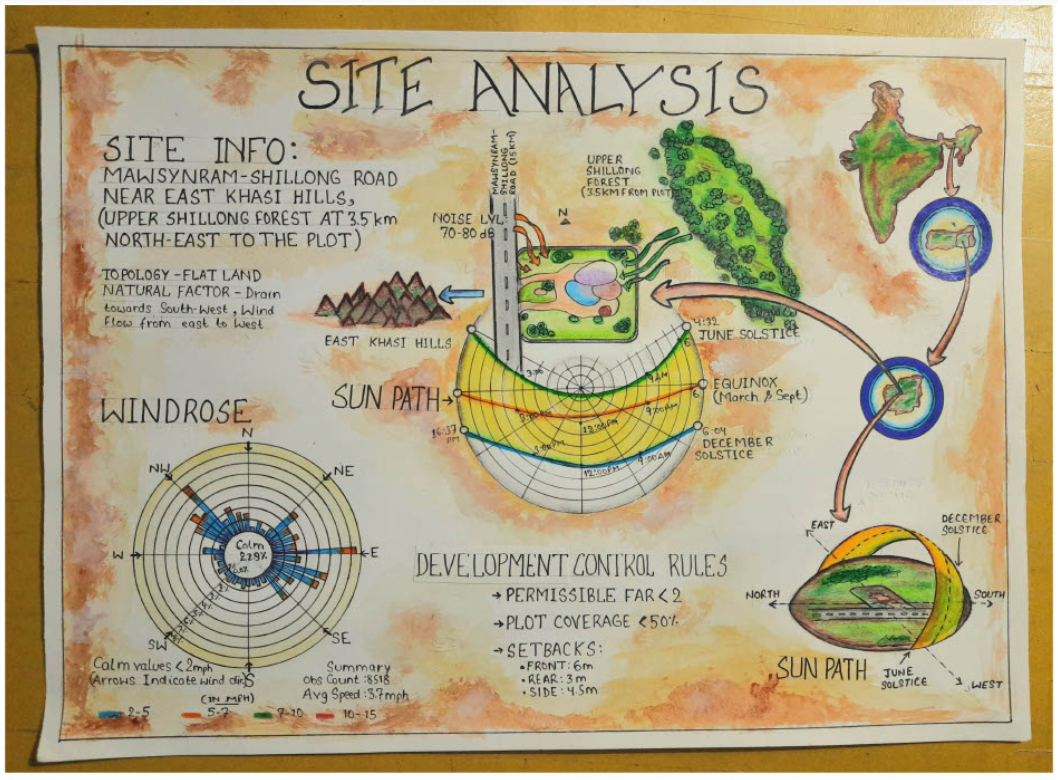 SITE ANALYSIS
SITE INFO:
MAWSYNRAM-SHILLONG ROAD
NEAR EAST KHASI HILLS,
(UPPER SHILLONG FOREST AT 3.5km
NORTH-EAST TO THE PLOT)
TOPOLOGY-FLAT LAND
NATURAL FACTOR-Drain
towards South-West, Wind
Flow from east to West
MAWSYNRAM-
SHILLONG
ROAD (15KM)
UPPER
SHILLONG
FOREST
(3.5KM FROM PLOT)
NOISE LVL
70-80 dB
N
EAST KHASI HILLS
4:32
JUNE SOLSTICE
6
SUN PATH
EQUINOX
(March & Sept)
6
9:00AM
12:00PM
3:00PM
16:37
PM
6:04
DECEMBER
SOLSTICE
9:00AM
12:00PM
WINDROSE
N
NE
E
SE
S
SW
W
NW
Calm
2.29%
Calm values <2mph
(Arrows Indicate wind dir.)
Summary
Obs Count:8518
Avg Speed:3.7mph
(IN MPH)
2-5
5-7
7-10
10-15
DEVELOPMENT CONTROL RULES
→ PERMISSIBLE FAR<2
→ PLOT COVERAGE <50%
→ SETBACKS:
• FRONT: 6m
• REAR: 3m
• SIDE: 4.5m
EAST
DECEMBER
SOLSTICE
NORTH
SOUTH
SUN PATH
JUNE
SOLSTICE
WEST